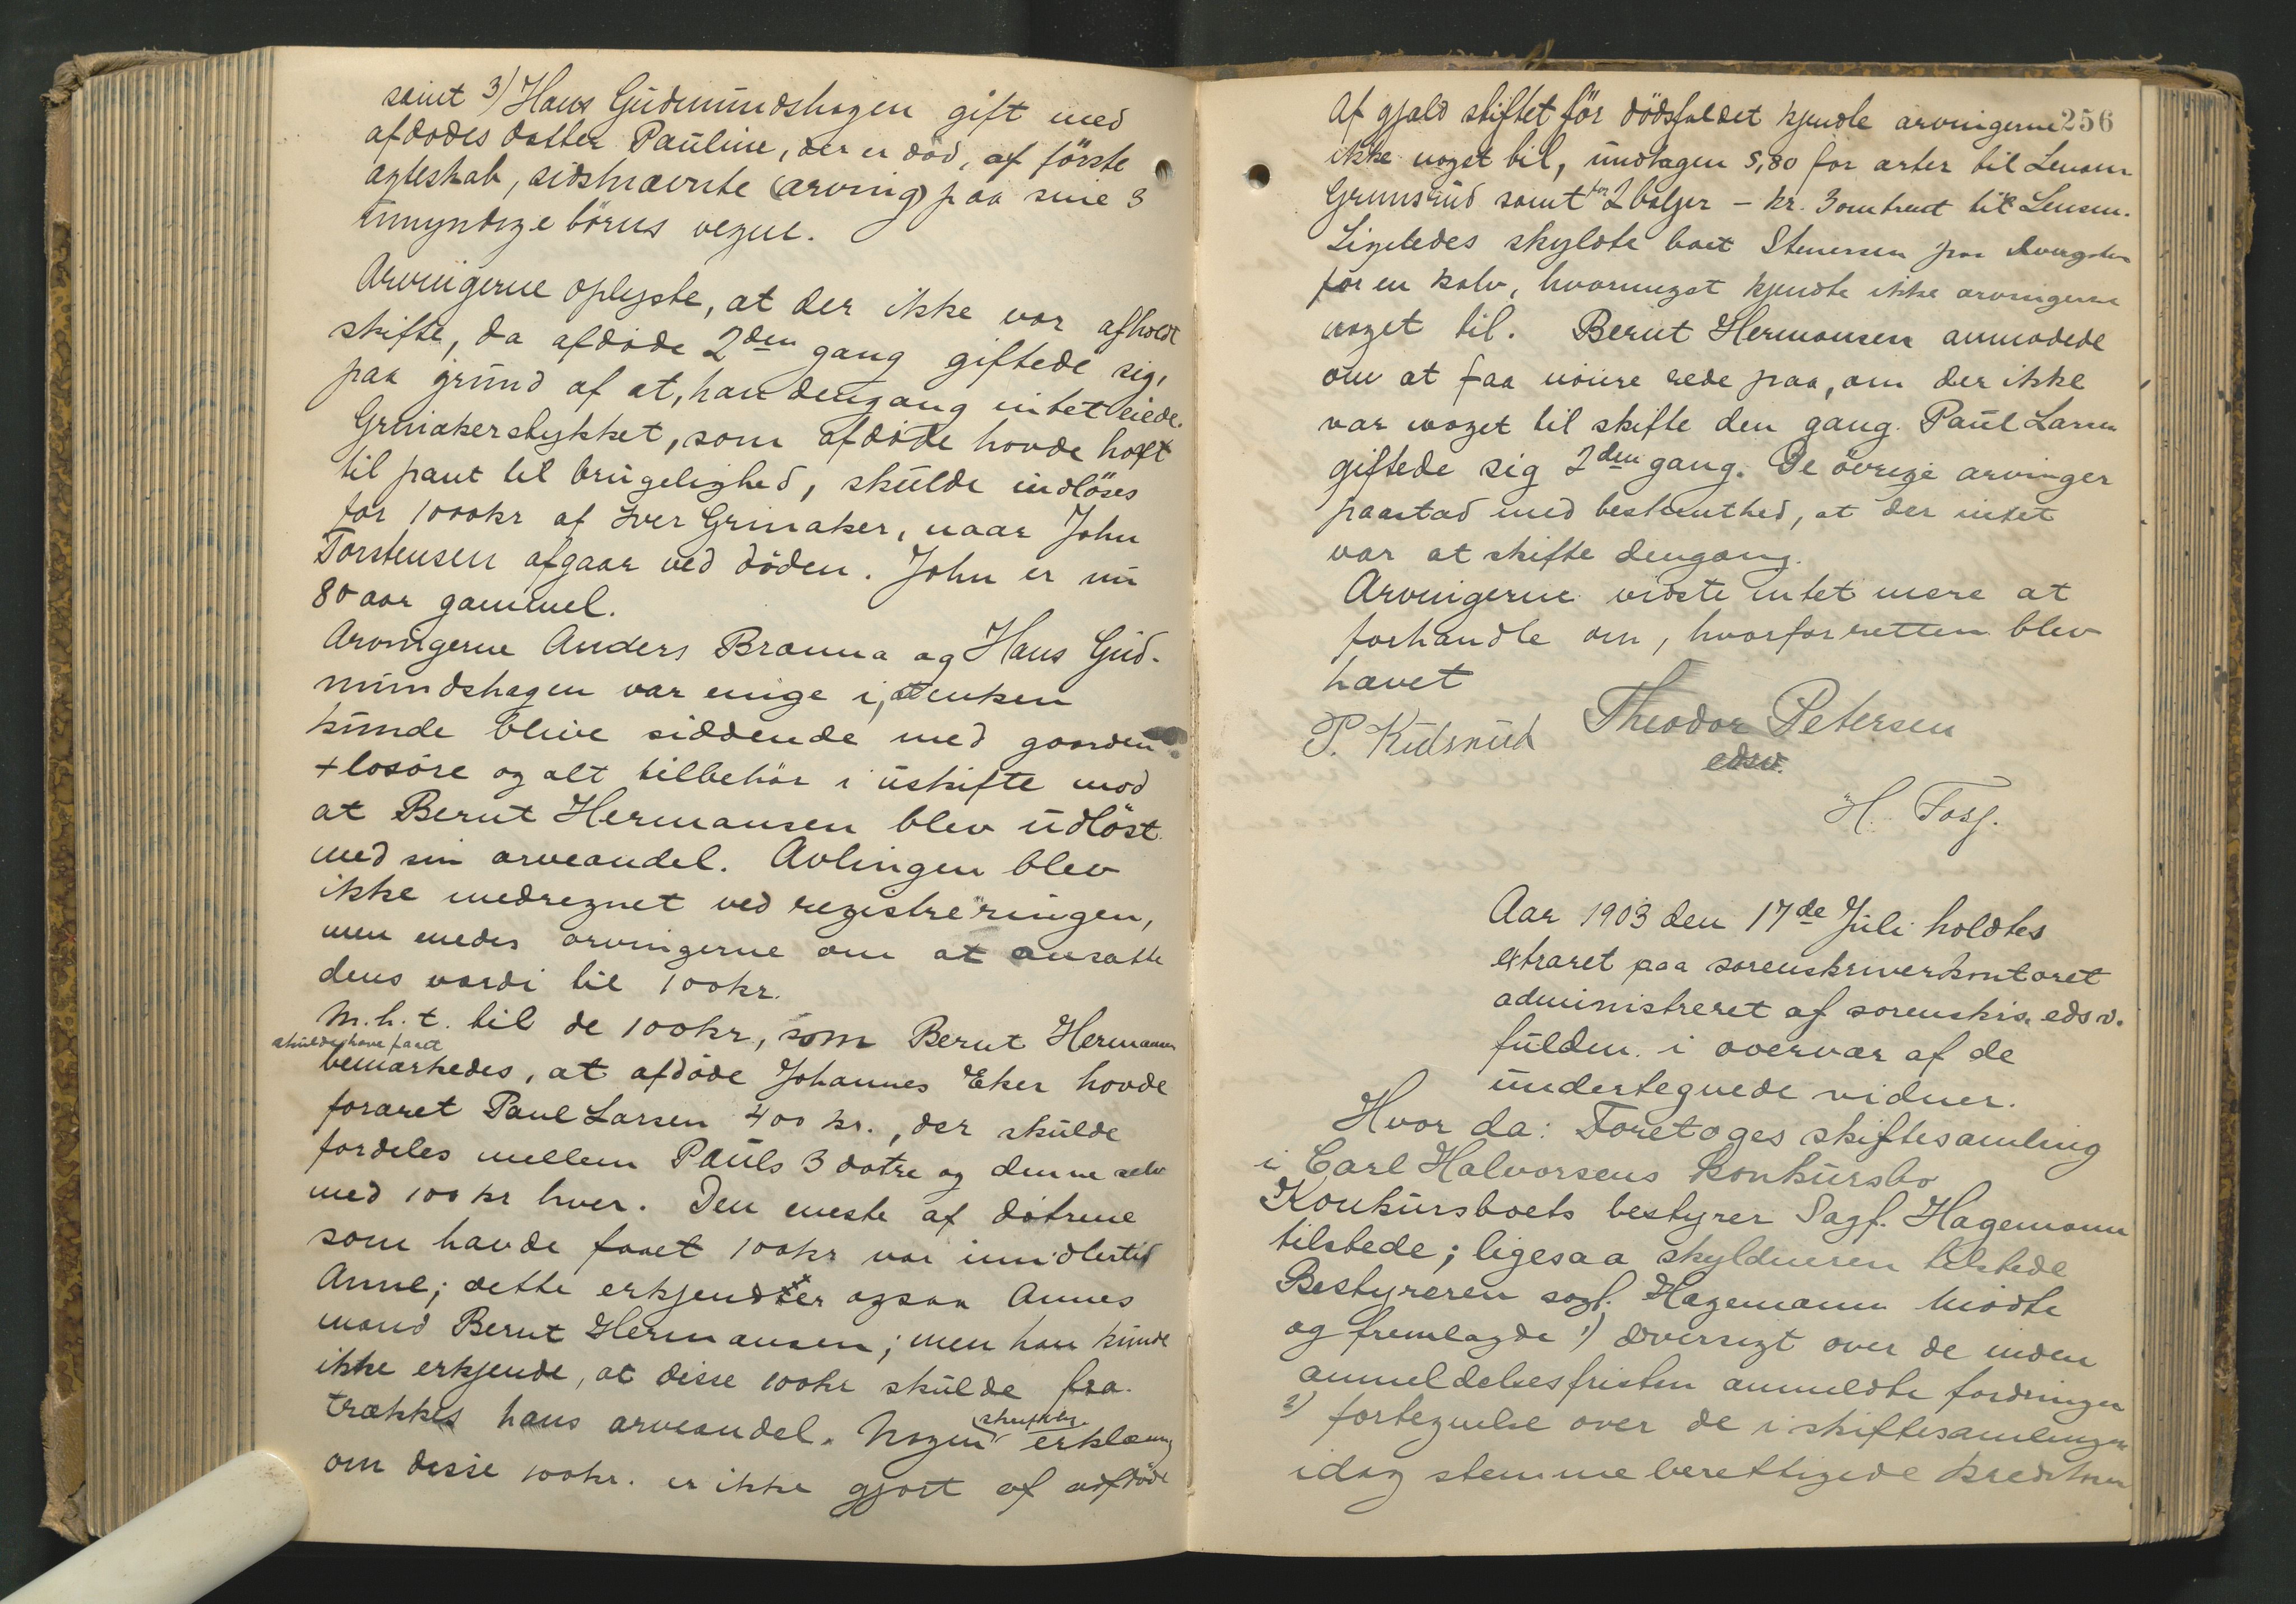 samt 3) Hans Gudmundshagen gift med
afdødes datter Pauline, der er död, af förste
ægteskab, sidstnævnte (arving) paa sine 3
umyndige börns vegne.
Arvingerne oplyste, at der ikke var afholdt
skifte, da afdöde 2den gang giftede sig,
paa grund af at, han dengang intet eiede.
Grinakerstykket, som afdöde havde havt
til pant til brugelighed, skulde indlöses
for 1000kr af Iver Grinaker, naar John
Torstensen afgaar ved döden. John er nu
80 aar gammel.
Arvingerne Anders Branna og Hans Gud-
mundshagen var enige i, at enken
kunde blive siddende med gaarden
+ løsöre og alt tilbehör i uskifte mod
at Bernt Hermansen blev udlöst
med sin arveandel. Avlingen blev
ikke medregnet ved registreringen,
men enedes arvingerne om at ansætte
dens værdi til 100kr.
M.h.t. til de 100kr, som Bernt Hermansen
skulde have faaet
bemærkedes, at afdöde Johannes Eker havde
foræret Paul Larsen 400 kr., der skulde
fordeles mellem Pauls 3 døtre og denne selv
med 100 kr hver. Den eneste af döttrene
som havde faaet 100kr var imidlertid
Anne; dette erkjendter ogsaa Annes
mand Bernt Hermansen; men han kunde
ikke erkjende, at disse 100kr skulde fra-
trækkes hans arveandel. Nogen skriftlig erklæring
om disse 100kr. er ikke gjort af afdöde
256
Af gjæld stiftet för dödsfaldet kjendte arvingerne
ikke noget til, undtagen 5,80 for erter til Lensm
Grimsrud samt for 2 bølger - kr. 3 omtrent til Lensm.
Ligeledes skyldte boet Stenersen paa
for en kalv, hvormeget kjendte ikke arvingerne
noget til. Bernt Hermansen anmodede
om at faa nöiere rede paa, om der ikke
var noget til skifte den gang Paul Larsen
giftede sig 2den gang. De övrige arvinger
paastod med bestemthed, at der intet
var at skifte dengang.
Arvingerne vidste intet mere at
forhandle om, hvorfor retten blev
hævet
P. Kidsrud Theodor Petersen
edsv.
H. Fosf.
Aar 1903 den 17de Juli holdtes
extraret paa sorenskriverkontoret
administreret af sorenskr. edsv.
fuldm. i overvær af de
undertegnede vidner.
Hvor da: Foretoges skiftesamling
i Carl Halvorsens konkursbo
Konkursboets bestyrer Sagf. Hagemann
tilstede; ligesaa skyldneren tilstede
Bestyreren sagf. Hagemann mödte
og fremlagde 1) oversigt over de inden
anmeldelsesfristen anmeldte fordringer
2) fortegnelse over de i skiftesamlingen
idag stemmeberettigede kreditorer